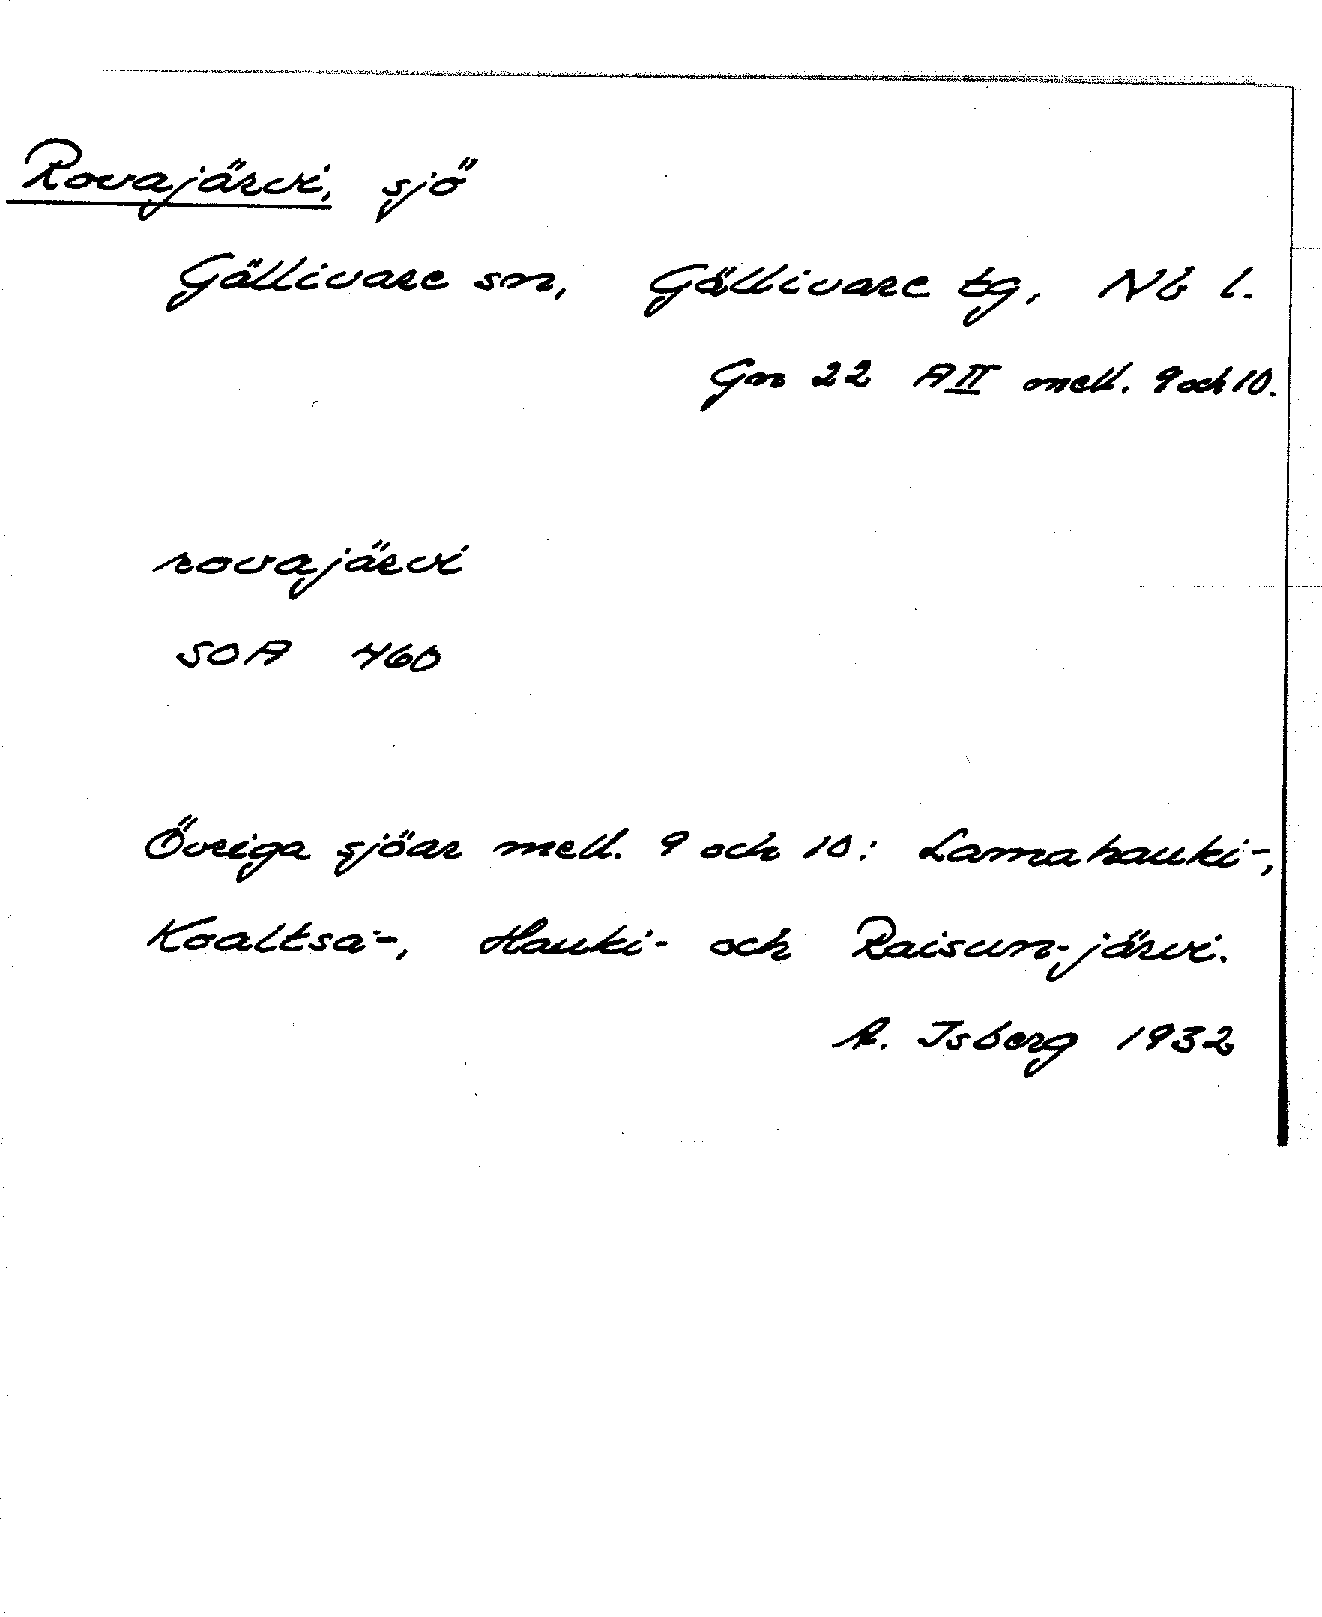 Rovajärvi, sjö
Gällivare sn, Gällivare tg, Nb l.
Gn 22 A II mell. 9 och 10.
rovajärvi
SOA 460
Övriga sjöar mell. 9 och 10: Lamahauki-,
Koaltsa-, Hauki- och Raisun-järvi.
A. Isberg 1932